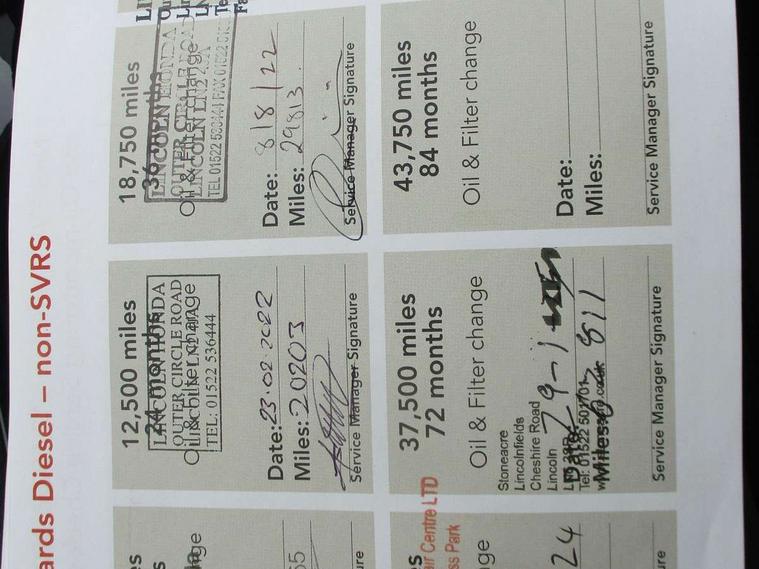 ards Diesel – non-SVRS
12,500 miles
24 months
Oil & Filter change
LINCOLN HONDA
OUTER CIRCLE ROAD
LINCOLN LN2 4HA
TEL: 01522 536444
Date: 23.02.2022
Miles: 20203
Service Manager Signature
18,750 miles
36 months
Oil & Filter change
LINCOLN HONDA
OUTER CIRCLE ROAD
LINCOLN LN2
Date: 8/8/22
Miles: 29813.
Service Manager Signature
ir Centre LTD
ss Park
nge
24
ure
37,500 miles
72 months
Oil & Filter change
Stoneacre
Lincolnfields
Cheshire Road
Lincoln
Date: 29-1-
Miles:
Service Manager Signature
43,750 miles
84 months
Oil & Filter change
Date:
Miles:
Service Manager Signature